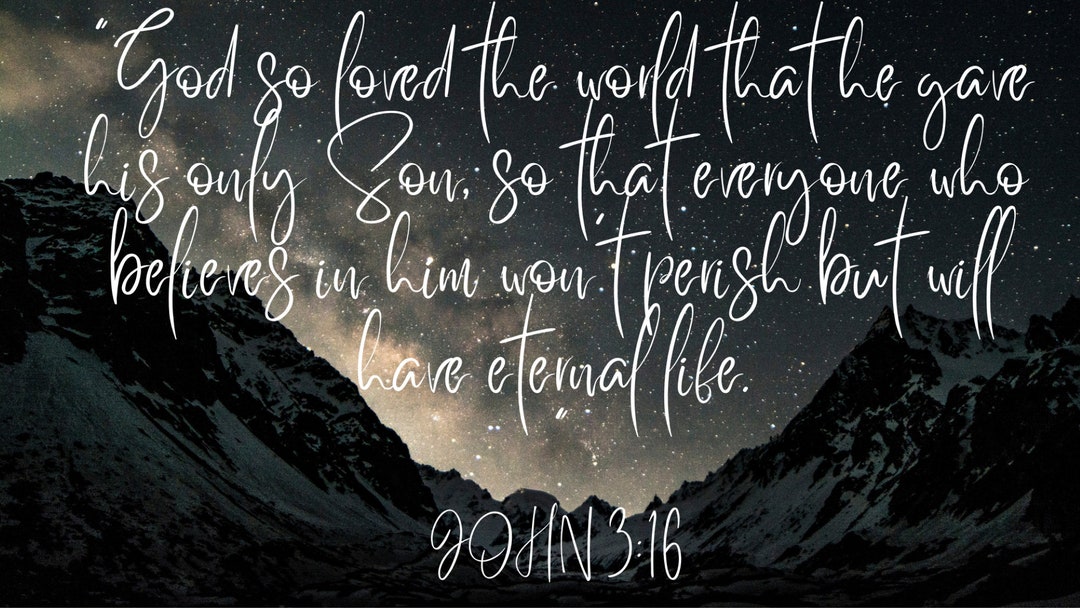 "God so loved the world that he gave
his only Son, so that everyone who
believes in him won't perish but will
have eternal life.
"
JOHN 3:16